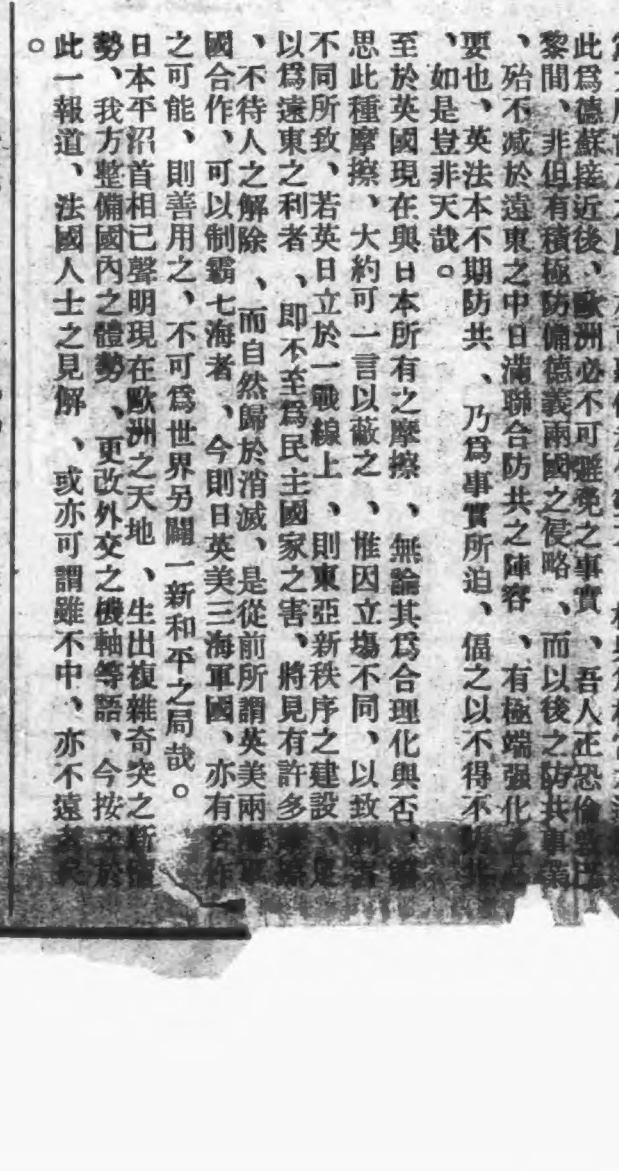 此爲德蘇接近後、歐洲必不可避免之事實、吾人正恐倫敦巴
黎間、非但有積極防備德義兩國之侵略、而以後之防共事業
、殆不减於遠東之中日滿聯合防共之陣容、有極端强化之必
要也、英法本不期防共、乃爲事實所迫、偪之以不得不防共
、如是豈非天哉。
至於英國現在與日本所有之摩擦、無論其爲合理化與否、
思此種摩擦、大約可一言以蔽之、惟因立塲不同、以致利害
不同所致、若英日立於一戰線上、則東亞新秩序之建設、足
以爲遠東之利者、即不至爲民主國家之害、將見有許多
、不待人之解除、而自然歸於消滅、是從前所謂英美兩海軍
國合作、可以制霸七海者、今則日英美三海軍國、亦有合作
之可能、則善用之、不可爲世界另闢一新和平之局哉。
日本平沼首相已聲明現在歐洲之天地、生出複雜奇突之新情
勢、我方整備國內之體勢、更改外交之機軸等語、今按之於
此一報道、法國人士之見解、或亦可謂雖不中、亦不遠矣
。